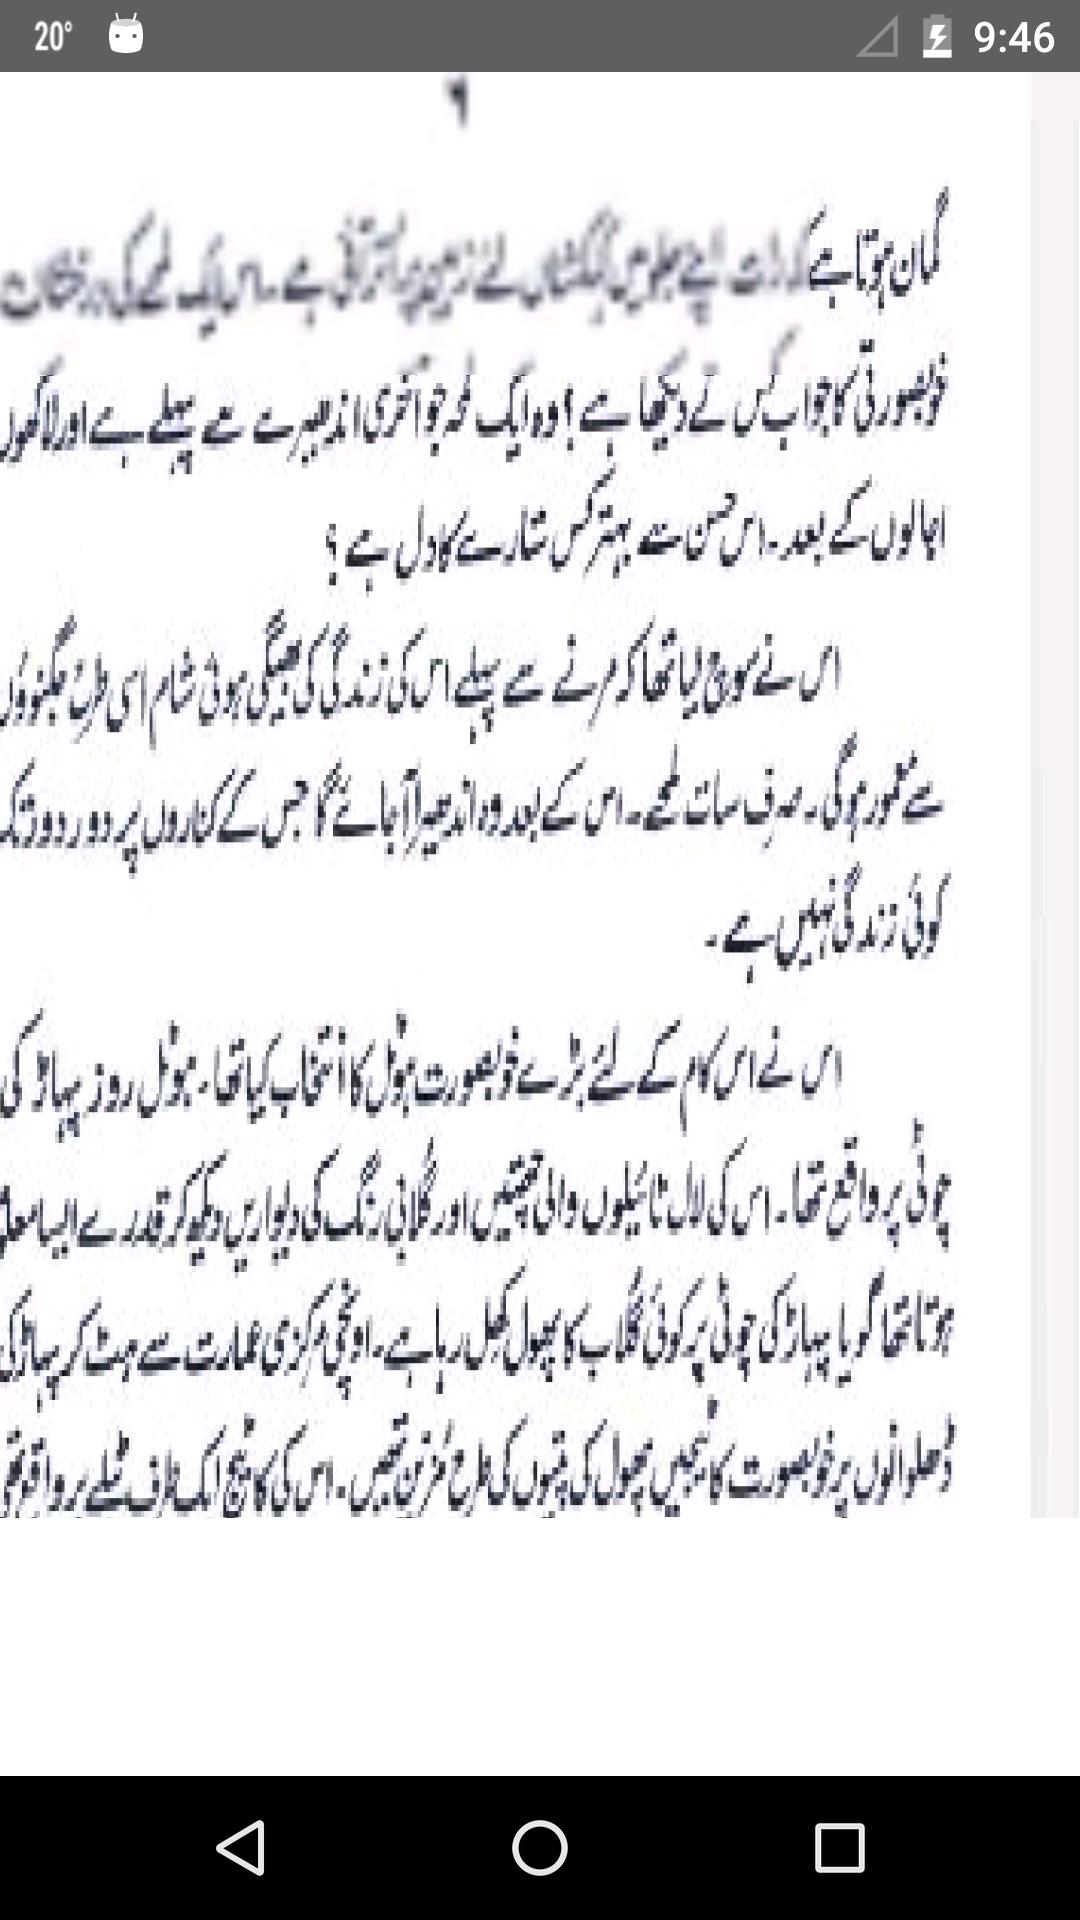 20° 9:46
۶
گمان ہوتا ہے کہ رات اپنے جلو میں کہکشاں لئے زمین پر اتر آئی ہے۔ اس ایک لمحے کی درخشاں
خوبصورتی کا جواب کس نے دیکھا ہے؟ وہ ایک لمحہ جو آخری اندھیرے سے پہلے ہے اور لاکھوں
اجالوں کے بعد۔ اس حسن سے بہتر کس ستارے کا دل ہے؟
اس نے سوچ لیا تھا کہ مرنے سے پہلے اس کی زندگی کی بھیگی ہوئی شام اسی طرح جگنوؤں
سے معمور ہوگی۔ صرف سات لمحے۔ اس کے بعد وہ اندھیرا آجائے گا جس کے کناروں پر دور دور تک
کوئی زندگی نہیں ہے۔
اس نے اس کام کے لئے بڑے خوبصورت ہوٹل کا انتخاب کیا تھا۔ ہوٹل روز پہاڑ کی
چوٹی پر واقع تھا۔ اس کی لال ٹائیلوں والی چھتیں اور گلابی رنگ کی دیواریں دیکھ کر قدرے ایسا
ہوتا تھا گویا پہاڑ کی چوٹی پر کوئی گلاب کا پھول کھل رہا ہے۔ اونچی مرکزی عمارت سے ہٹ کر پہاڑ کی
ڈھلوانوں پر خوبصورت کاٹیجیں پھول کی پتیوں کی طرح مزین تھیں۔ اس کی کاٹیج ایک طرف ٹیلے پر واقع تھی